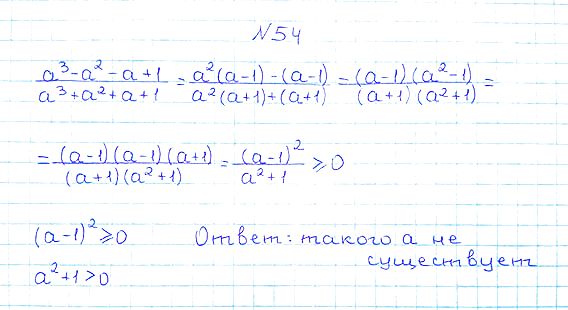 N54
(a³-a²-a+1)/(a³+a²+a+1) = (a²(a-1)-(a-1))/(a²(a+1)+(a+1)) = ((a-1)(a²-1))/((a+1)(a²+1)) =
= ((a-1)(a-1)(a+1))/((a+1)(a²+1)) = (a-1)²/(a²+1) ⩾ 0
(a-1)² ⩾ 0
a²+1 > 0
Ответ: такого а не
существует